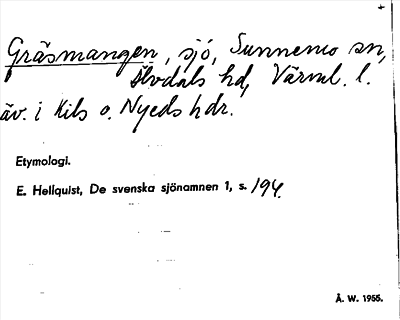 Gräsmangen, sjö, Sunnemo sn,
Älvdals hd, Värml. l.
äv. i Kils o. Nyeds hdr.
Etymologi.
E. Hellquist, De svenska sjönamnen 1, s. 194.
Å. W. 1955.